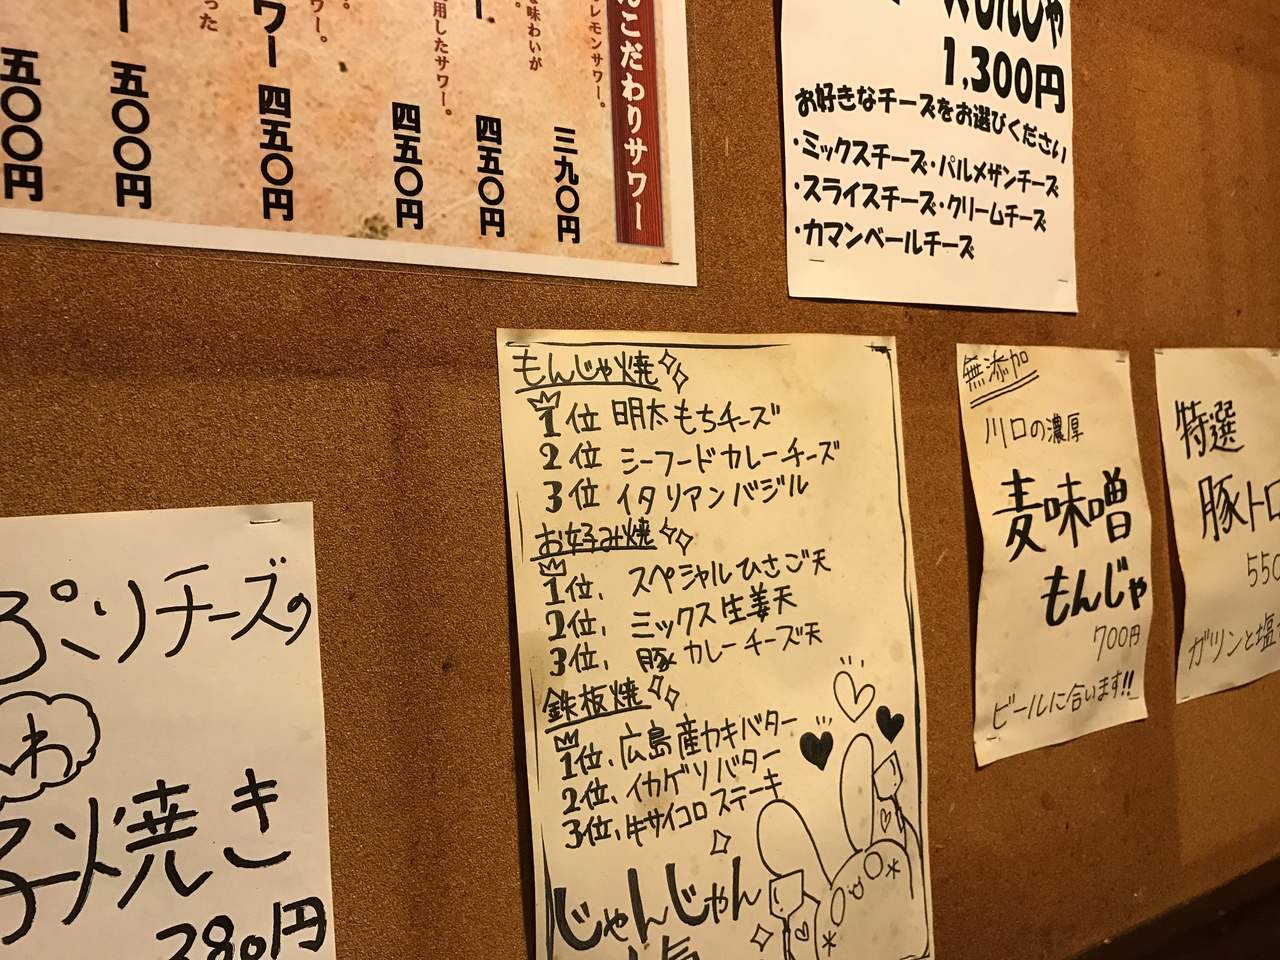 こだわりサワー
レモンサワー。
三九〇円
味わいが
四五〇円
用したサワー。
四五〇円
ワー
四五〇円
った
五〇〇円
五〇〇円
もんじゃ
1,300円
お好きなチーズをお選びください
・ミックスチーズ・パルメザンチーズ
・スライスチーズ・クリームチーズ
・カマンベールチーズ
もんじゃ焼
1位 明太もちチーズ
2位 シーフードカレーチーズ
3位 イタリアンバジル
お好み焼
1位、スペシャルひさご天
2位、ミックス生姜天
3位、豚カレーチーズ天
鉄板焼
1位、広島産カキバター
2位、イカゲソバター
3位、牛サイコロステーキ
じゃんじゃん
無添加
川口の濃厚
麦味噌
もんじゃ
700円
ビールに合います!!
特選
豚トロ
550
ガツンと塩
ぷりチーズの
わ
焼き
380円